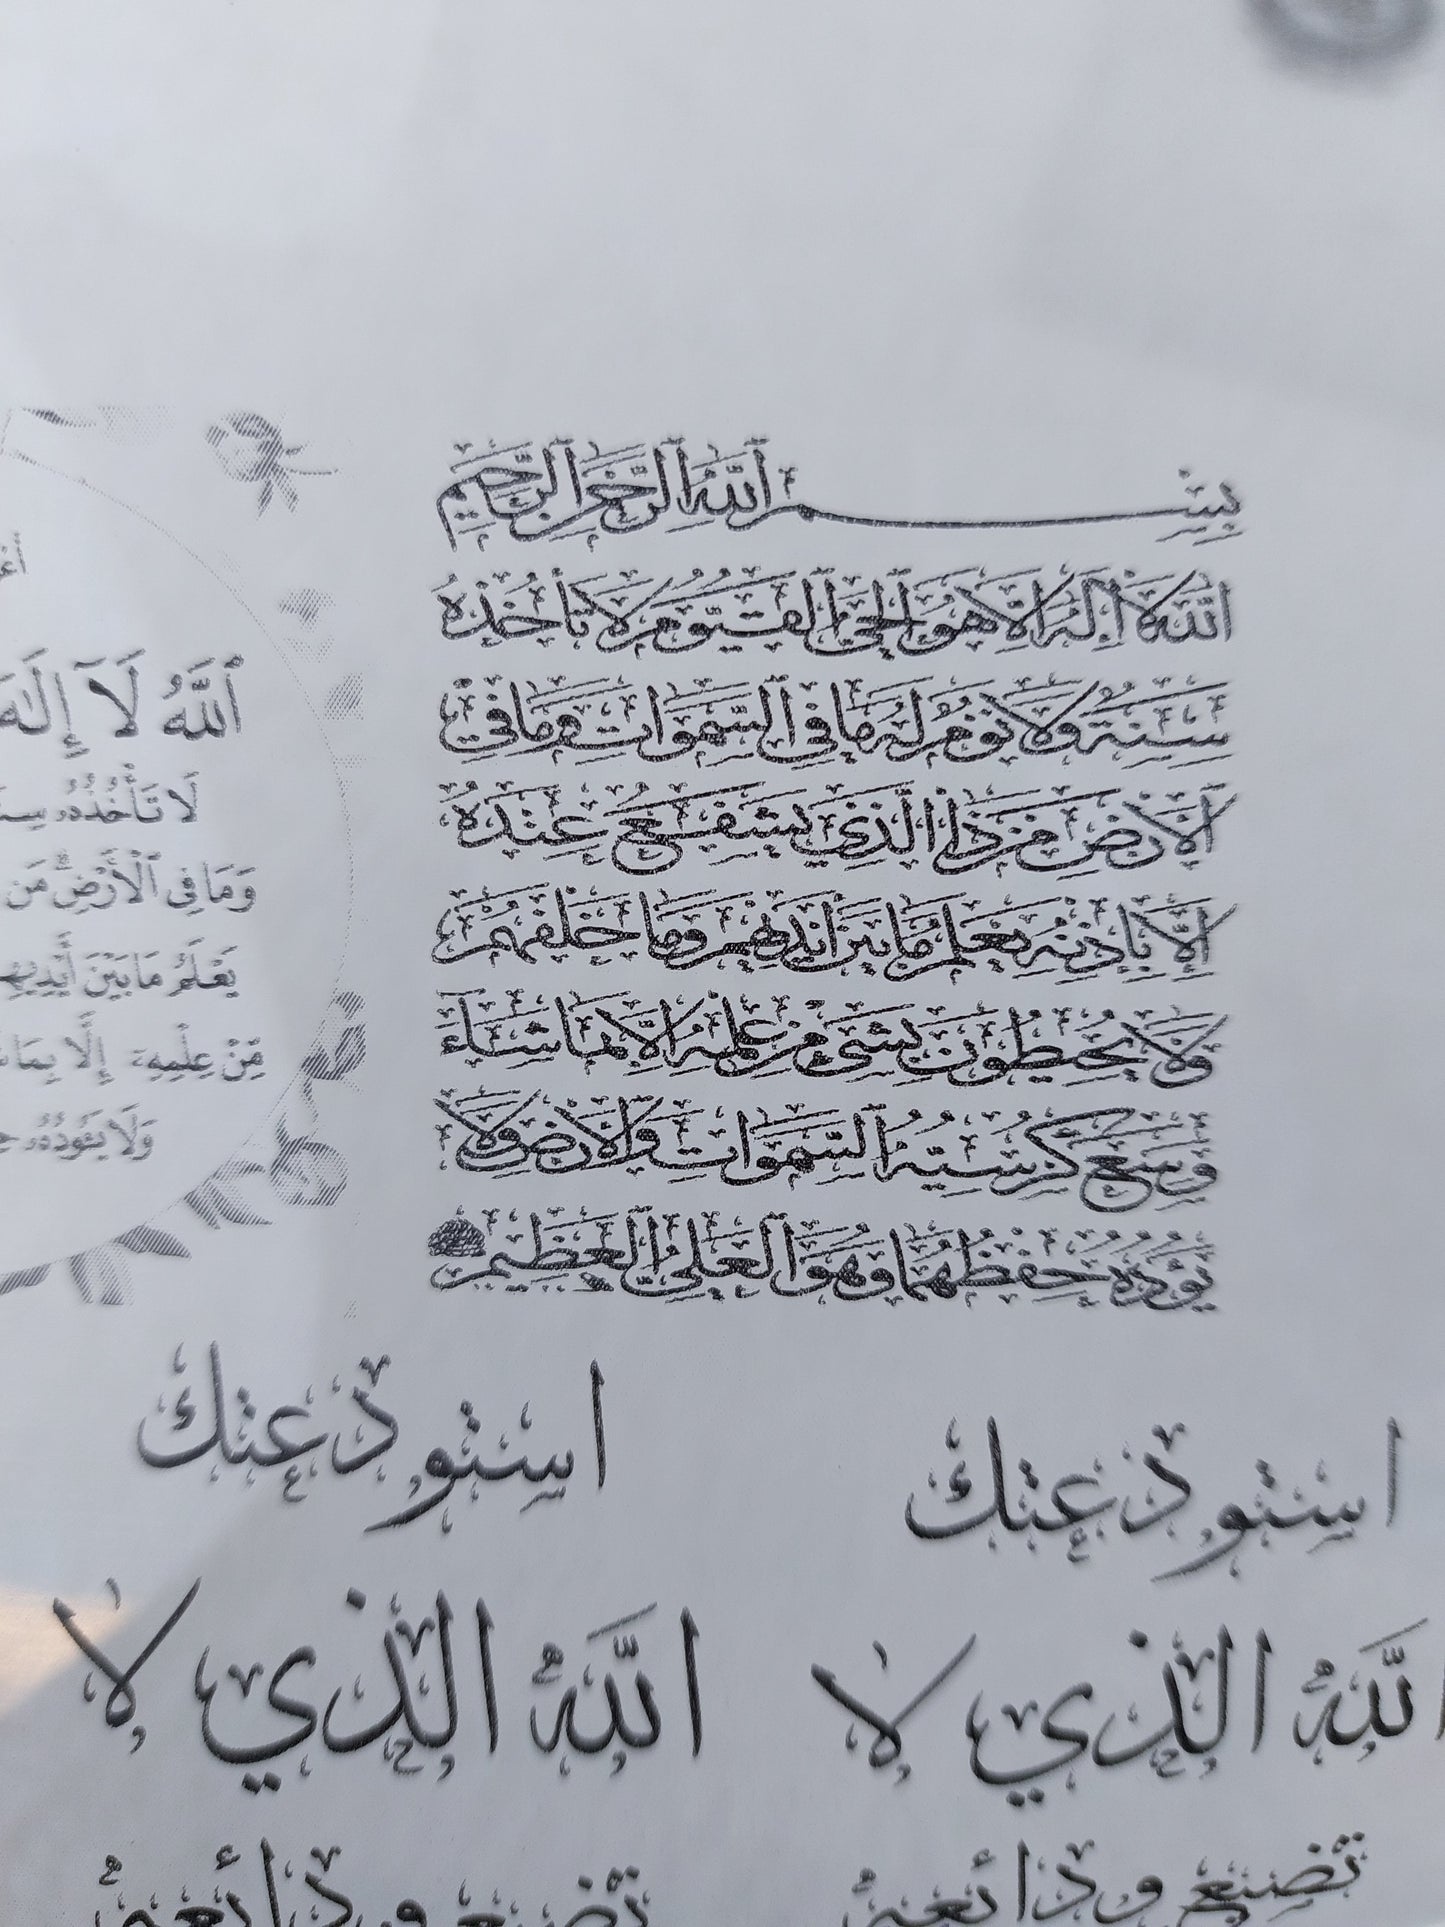 بِسْمِ اللَّهِ الرَّحْمَنِ الرَّحِيمِ
اللَّهُ لَا إِلَهَ إِلَّا هُوَ الْحَيُّ الْقَيُّومُ لَا تَأْخُذُهُ
سِنَةٌ وَلَا نَوْمٌ لَهُ مَا فِي السَّمَوَاتِ وَمَا فِي
الْأَرْضِ مَنْ ذَا الَّذِي يَشْفَعُ عِنْدَهُ
إِلَّا بِإِذْنِهِ يَعْلَمُ مَا بَيْنَ أَيْدِيهِمْ وَمَا خَلْفَهُمْ
وَلَا يُحِيطُونَ بِشَيْءٍ مِنْ عِلْمِهِ إِلَّا بِمَا شَاءَ
وَسِعَ كُرْسِيُّهُ السَّمَوَاتِ وَالْأَرْضَ وَلَا
يَؤُدُهُ حِفْظُهُمَا وَهُوَ الْعَلِيُّ الْعَظِيمُ
ٱللَّهُ لَآ إِلَٰهَ
لَا تَأْخُذُهُۥ
وَمَا فِى ٱلْأَرْضِ ۗ مَن
يَعْلَمُ مَا بَيْنَ أَيْدِيهِ
مِّنْ عِلْمِهِۦٓ إِلَّا بِمَا
وَلَا يَـُٔودُهُۥ
اسِتودَعتك
اللّهُ الَذِي لا
تضيع ودائعهُ
اسِتودَعتك
اللّهُ الَذِي لا
تضيع ودائعهُ